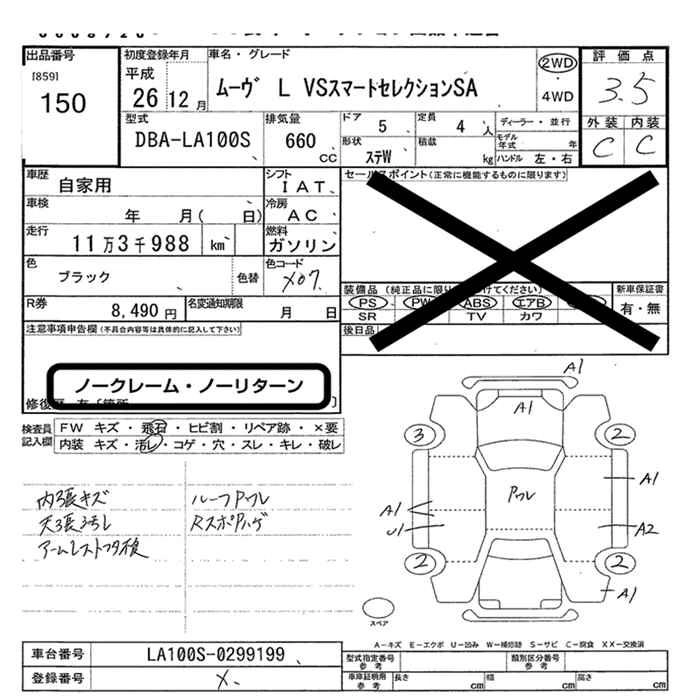 出品番号
[859]
150
初度登録年月
平成
26年12月
車名・グレード
ムーヴ L VSスマートセレクションSA
2WD
4WD
評価点
3.5
外装 内装
C C
型式
DBA-LA100S
排気量
660 CC
ドア 5
定員 4 人
形状 ステW
積載 kg
ディーラー・並行
モデル年式 年
ハンドル 左・右
車歴 自家用
シフト IAT
車検 年 月( 日)
冷房 AC
走行 11万3千988 km
燃料 ガソリン
色 ブラック 色替
色コード X07
R券 8,490円
名変通知期限 月 日
セールスポイント(正常に機能するものに限ります)
装備品
PS PW ABS エアB
SR TV カワ
新車保証書
有・無
後日品
注意事項申告欄(不具合内容等は具体的に記入して下さい)
ノークレーム・ノーリターン
検査員記入欄
FW キズ・飛石・ヒビ割・リペア跡・×要
内装 キズ・汚レ・コゲ・穴・スレ・キレ・破レ
内張キズ
天張汚レ
ルーフPワレ
RスポPハゲ
A1
A1
3 2
Pワレ
A1
A1
U1
A2
2 2
A1
スペア
A-キズ E-エクボ U-凹み W-補修跡 S-サビ C-腐食 XX-交換済
車台番号 LA100S-0299199
登録番号 X
型式指定番号 参考
類別区分番号 参考
車庫証明用 参考
長さ cm 幅 cm 高さ cm